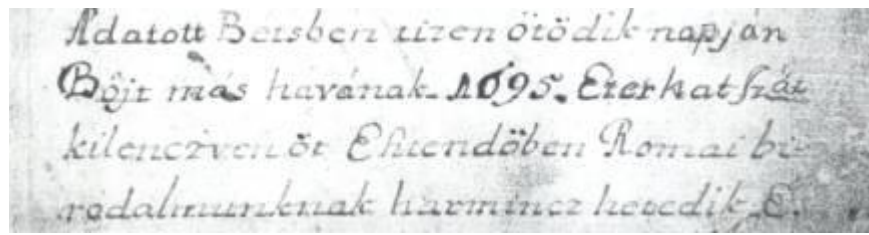 Adatott Betsben tizen ötödik napján
Bőjt más havának. 1695. Ezer hat szát
kilenczven öt Esztendöben Romai bi-
rodalmunknak harmincz hetedik E.